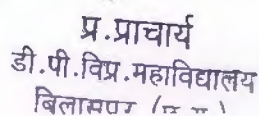 प्र.प्राचार्य
डी.पी.विप्र.महाविद्यालय
बिलासपुर